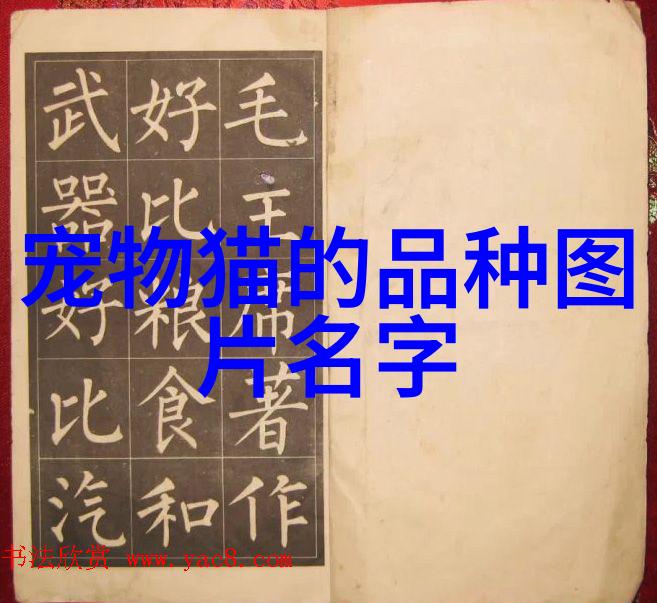 毛主席著作
好比粮食和
武器好比汽
宠物猫的品种图
片名字
书法欣赏 www.yac8.com